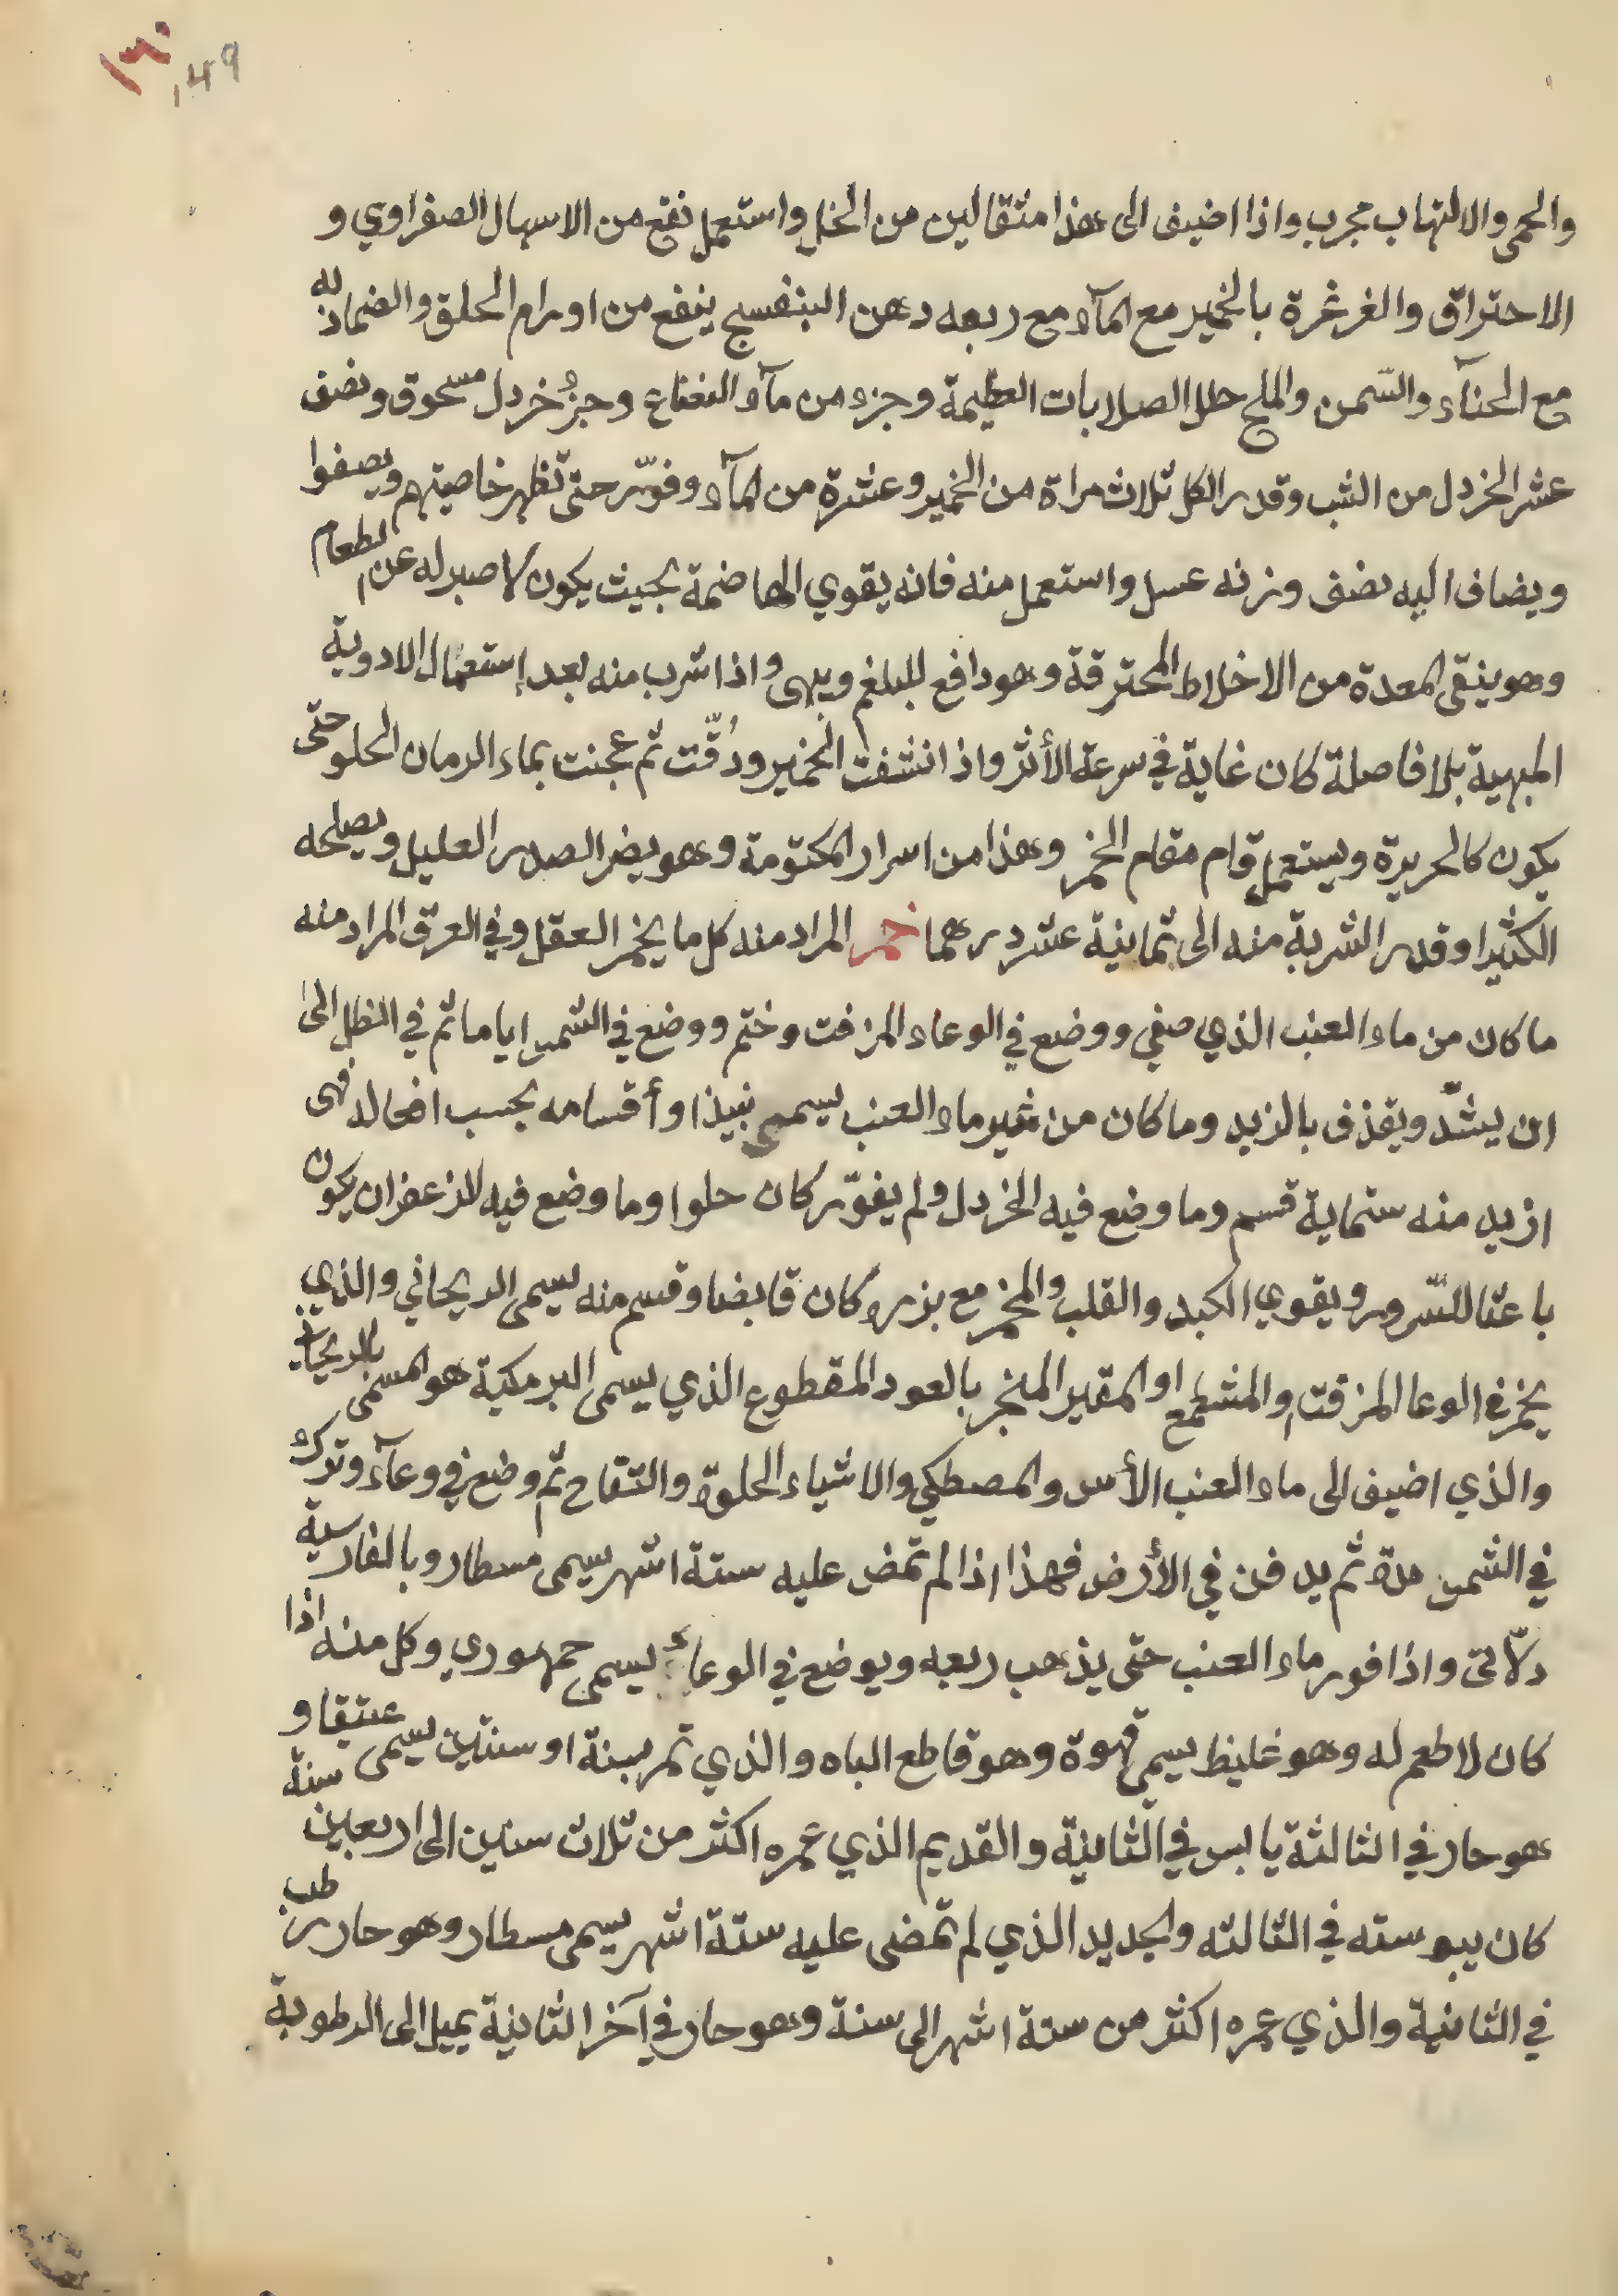 ١٣٠
149
والحمى والالتهاب مجرب واذا اضيف الى هذا مثقالين من الخل واستعمل نفع من الاسهال الصفراوي و
الاحتراق والغرغرة بالخمير مع المآء مع ربعه دهن البنفسج ينفع من اورام الحلق والضماد به
مع الحنآء والسّمن والملح حلل الصلابات العظيمة وجزء من مآء النعناع وجزُ خردل مسحوق ونصف
عشر الخردل من الشب وقدر الكل ثلاث مراة من الخمير وعشرة من المآء وفوّر حتى تظهر خاصيتهم ويصفوا
ويضاف اليه نصف وزنه عسل واستعمل منه فانه يقوي الهاضمة بحيث يكون لا صبر له عن الطعام
وهو ينقى المعدة من الاخلاط المحترقة وهو دافع للبلغم ويبهى واذا شرب منه بعد إستعمال الادوية
المبهية بلا فاصلة كان غاية في سرعة الأثر واذا نشفت الخمير ودُقّت ثم عجنت بماء الرمان الحلو حتى
يكون كالحريرة ويستعمل قام مقام الخمر وهذا من اسرار المكتومة وهو يضر الصدر العليل ويصلحه
الكثيرا وقدر الشربة منه الى ثمانية عشر درهما خمر المراد منه كل ما يخمر العقل وفي العرق المراد منه
ما كان من ماء العنب الذي صفي ووضع في الوعاء المزفت وختم ووضع في الشمس اياما ثم في الظل الى
ان يشدّ ويقذف بالزبد وما كان من غير ماء العنب يسمى نبيذا وأقسامه بحسب افعاله فهى
ازيد منه ستماية قسم وما وضع فيه الخردل ولم يفوّر كان حلوا وما وضع فيه الزعفران يكون
باعثا للسّرور ويقوي الكبد والقلب والمخمر مع بزره كان قابضا وقسم منه يسمى الريحاني والذي
يخمر في الوعا المزفت والمشمع او المقير المبخر بالعود المقطوع الذي يسمى البرمكية هو المسمى بالريحاني
والذي اضيف الى ماء العنب الأس والمصطكي والاشياء الحلوة والتفاح ثم وضع في وعآء وترك
في الشمس مدة ثم يدفن في الأرض فهذا اذا لم تمض عليه ستة اشهر يسمى مسطار وبالفارسية
دلّاتى واذا فور ماء العنب حتى يذهب ربعه ويوضع في الوعاء يسمى جمهوري وكل منه اذا
كان لا طعم له وهو غليظ يسمى قهوة وهو قاطع الباه والذي تمر بسنة او سنتين يسمى عتيقا و
هو حار في الثالثة يابس في الثانية والقديم الذي عمره اكثر من ثلاث سنين الى اربعين سنة
كان يبوسته في الثالثه والجديد الذي لم تمضى عليه ستة اشهر يسمى مسطار وهو حار رطب
في الثانية والذي عمره اكثر من ستة اشهر الى سنة وهو حار في آخر الثانية يميل الى الرطوبة